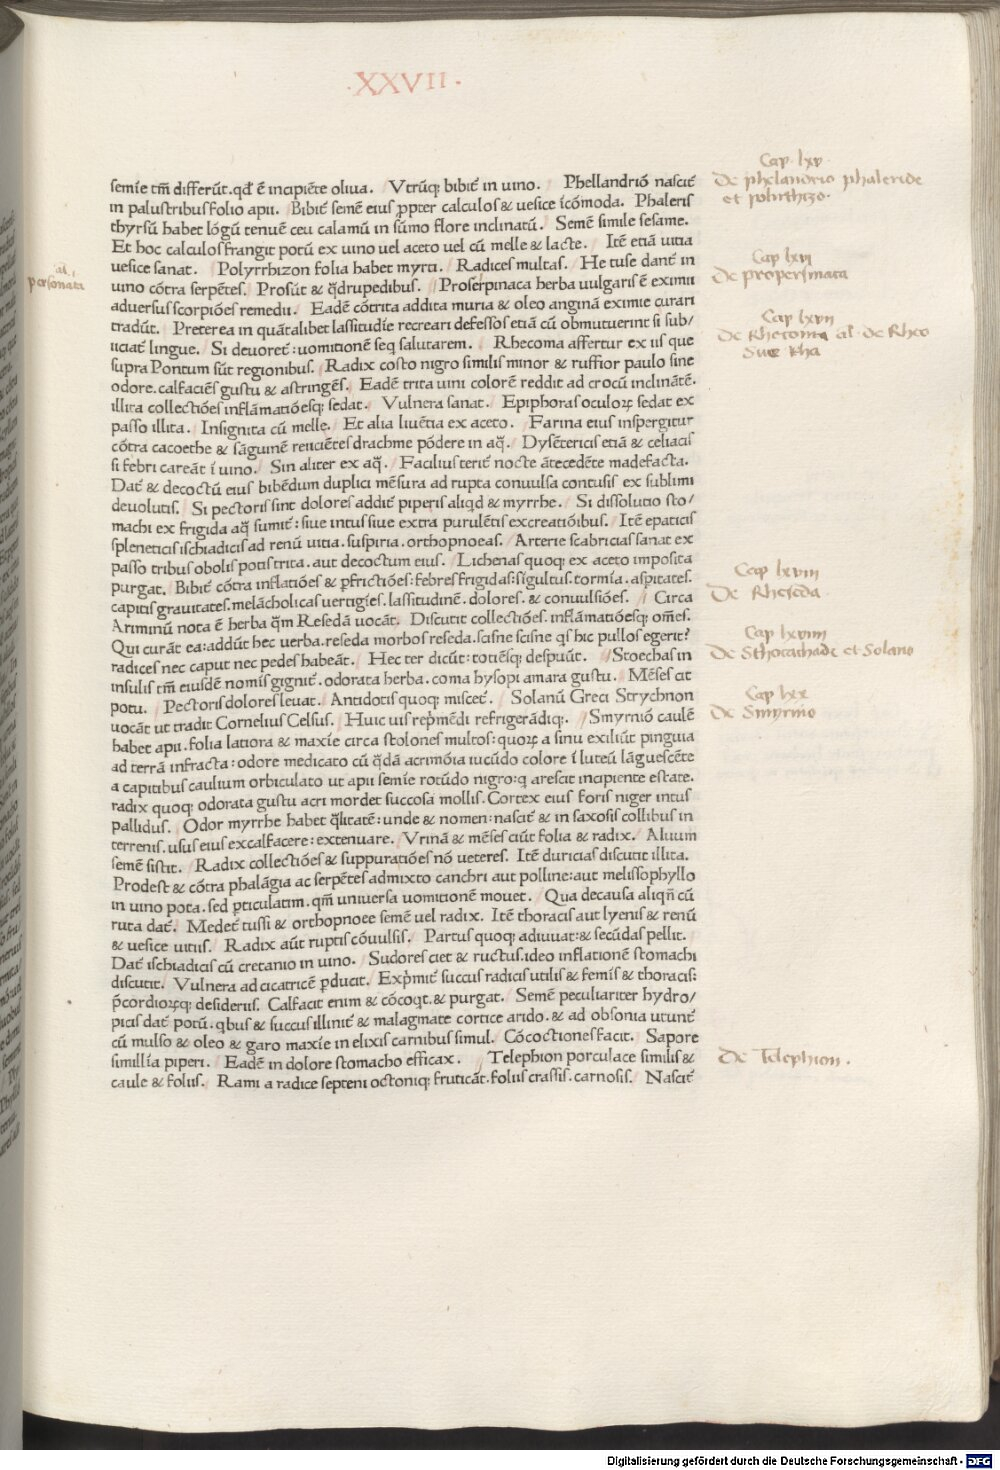 ·XXVII·
semīe tm̄ differūt.qđ ē incipiēte oliua. Vtrūq; bibit̄ in uino. Phellandriō nascit̄
in palustribus folio apii. Bibit̄ semē eius ꝓpter calculos & uesice īcōmoda. Phaleris
thyrsū habet lōgū tenuē ceu calamū in sūmo flore inclinatū. Semē simile sesame.
Et hoc calculos frangit potū ex uino uel aceto uel cū melle & lacte. Itē etiā uitia
uesice sanat. Polyrrhizon folia habet myrti. Radices multas. He tuse dant̄ in
uino cōtra serpētes. Prosūt & q̄drupedibus. Proserpinaca herba uulgaris ē eximii
aduersus scorpiōes remedii. Eadē cōtrita addita muria & oleo anginā eximie curari
tradūt. Preterea in quātalibet lassitudīe recreari defessos etiā cū obmutuerint si sub/
iiciat̄ lingue. Si deuoret̄: uomitionē seq̄ salutarem. Rhecoma affertur ex iis que
supra Pontum sūt regionibus. Radix costo nigro similis minor & ruffior paulo sine
odore.calfaciēs gustu & astringēs. Eadē trita uini colorē reddit ad crocū inclinātē.
illita collectiōes inflāmatiōesq; sedat. Vulnera sanat. Epiphoras oculoꝝ sedat ex
passo illita. Insignita cū melle. Et alia liuētia ex aceto. Farina eius inspergitur
cōtra cacoethe & sāguinē reiiciētes drachme pōdere in aq̄. Dysētericis etiā & celiacis
si febri careāt ī uino. Sin aliter ex aq̄. Facilius terit̄ nocte ātecedēte madefacta.
Dat̄ & decoctū eius bibēdum duplici mēsura ad rupta conuulsa contusis ex sublimi
deuolutis. Si pectoris sint dolores addit̄ piperis aliqd & myrrhe. Si dissolutio sto/
machi ex frigida aq̄ sumit̄: siue intus siue extra purulētis excreatiōibus. Itē epaticis
spleneticis ischiadicis ad renū uitia.suspiria.orthopnoeas. Arterie scabricias sanat ex
passo tribus obolis potis trita.aut decoctum eius. Lichenas quoq; ex aceto imposita
purgat. Bibit̄ cōtra inflatiōes & ꝑfrictiōes:febres frigidas:sīgultus.tormīa.aspitates.
capitis grauitates.melācholicas uertigīes.lassitudinē.dolores.& conuulsiōes. Circa
Ariminū nota ē herba q̄m Resedā uocāt. Discutit collectiōes.inflāmatiōesq; om̄es.
Qui curāt ea:addūt hec uerba.reseda morbos reseda.scisne scisne qs hic pullos egerit?
radices nec caput nec pedes habeāt. Hec ter dicūt: totiēsq; despuūt. Stoechas in
insulis tm̄ eiusdē nomīs gignit̄.odorata herba.coma hysopi amara gustu. Mēses ciet
potu. Pectoris dolores leuat. Antidotis quoq; miscet̄. Solanū Greci Strychnon
uocāt ut tradit Cornelius Celsus. Huic uis rep̄mēdi refrigerādiq;. Smyrniō caulē
habet apii.folia latiora & maxīe circa stolones multos:quoꝝ a sinu exiliūt pinguia
ad terrā infracta:odore medicato cū q̄dā acrimōia iucūdo colore ī luteū lāguescēte
a capitibus caulium orbiculato ut apii semīe rotūdo nigro:q̄ arescit incipiente estate.
radix quoq; odorata gustu acri mordet succosa mollis.Cortex eius foris niger intus
pallidus. Odor myrrhe habet q̄litatē:unde & nomen:nascit̄ & in saxosis collibus in
terrenis.usus eius excalfacere:extenuare. Vrinā & mēses ciūt folia & radix. Aluum
semē sistit. Radix collectiōes & suppuratiōes nō ueteres. Itē duricias discutit illita.
Prodest & cōtra phalāgia ac serpētes admixto canchri aut polline:aut melissophyllo
in uino pota.sed ꝑticulatim.qm̄ uniuersa uomitionē mouet. Qua decausa aliqn̄ cū
ruta dat̄. Medet̄ tussi & orthopnoee semē uel radix. Itē thoracis aut lyenis & renū
& uesice uitiis. Radix aūt ruptis cōuulsis. Partus quoq; adiuuat:& secūdas pellit.
Dat̄ ischiadicis cū cretanio in uino. Sudores ciet & ructus.ideo inflationē stomachi
discutit. Vulnera ad cicatricē ꝑducit. Exp̄mit̄ succus radicis utilis & femīs & thoracis:
p̄cordioꝝq; desideriis. Calfacit enim & cōcoqt.& purgat. Semē peculiariter hydro/
picis dat̄ potū.qbus & succus illinit̄ & malagmate cortice arido.& ad obsonia utunt̄
cū mulso & oleo & garo maxīe in elixis carnibus simul. Cōcoctiones facit. Sapore
simillīa piperi. Eadē in dolore stomacho efficax. Telephion porculace similis &
caule & foliis. Rami a radice septeni octoniq; fruticāt.foliis crassis.carnosis. Nascit̄
al.
personati
Cap· lxv·
De phelandrio phaleride
et polirrhizo·
Cap lxvi
De propersinata
Cap lxvii
De Rhecoma al· de Rheo
Siue Rha
Cap lxviii
De Rheseda·
Cap lxviiii
De Sthoecahade et Solano
Cap lxx
De Smyrnio
De Telephion.
Digitalisierung gefördert durch die Deutsche Forschungsgemeinschaft - DFG